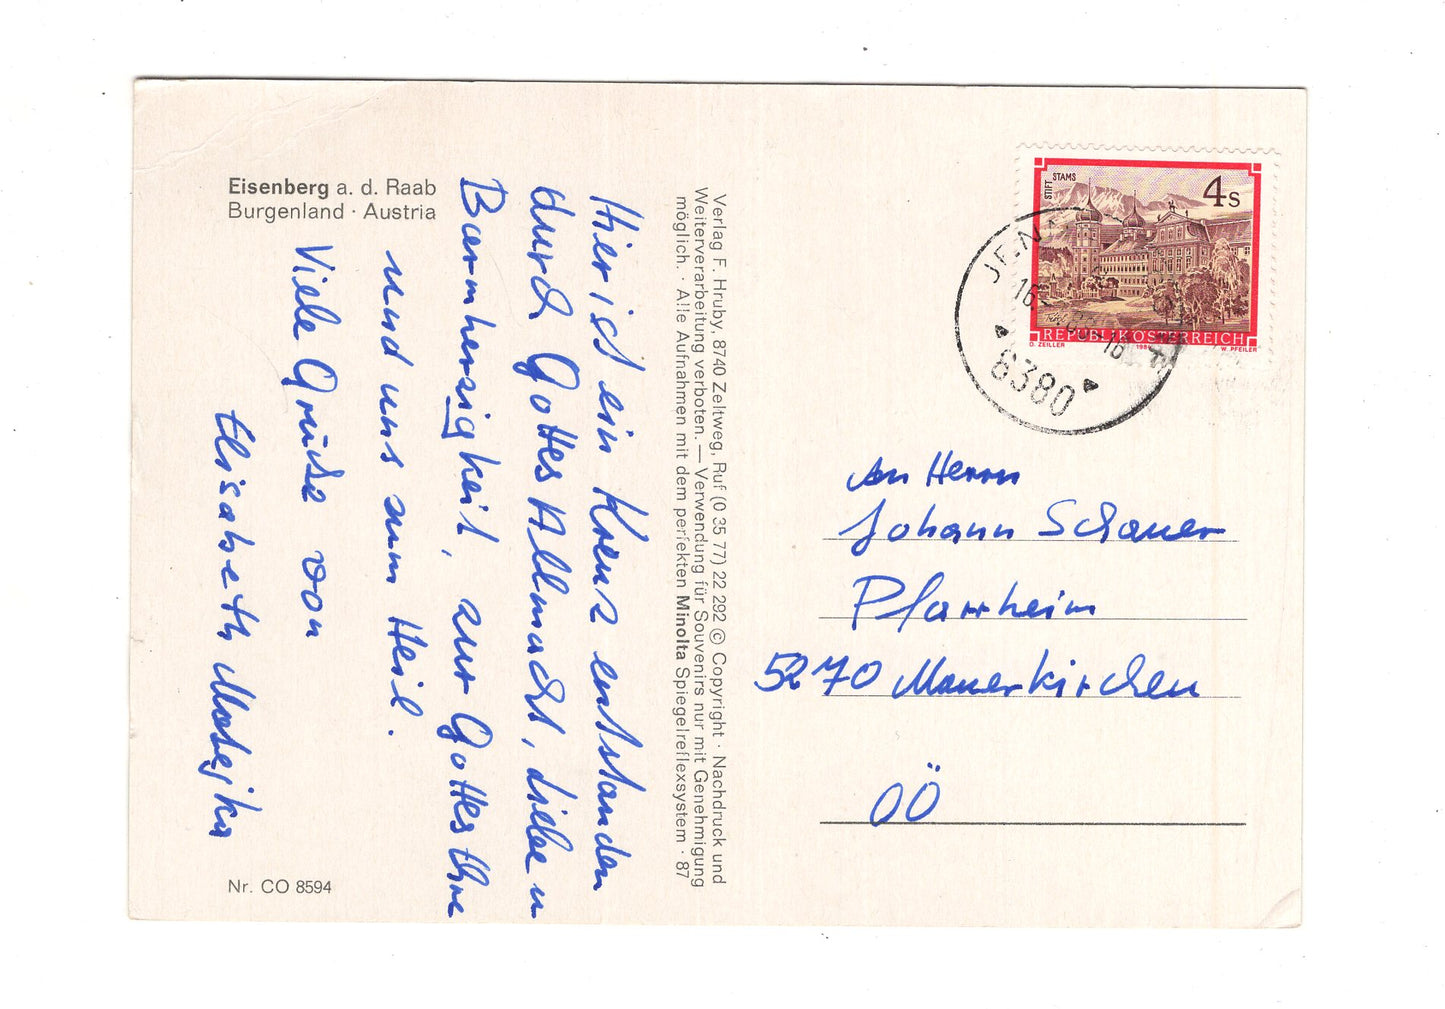 Eisenberg a. d. Raab
Burgenland · Austria
Hier ist ein Kreuz entstanden
durch Gottes Allmacht, Liebe u
Barmherzigkeit, zur Gottes Ehre
und uns zum Heil.
Viele Grüße von
Elisabeth Matejka
Nr. CO 8594
Verlag F. Hruby, 8740 Zeltweg, Ruf (0 35 77) 22 292 © Copyright · Nachdruck und
Weiterverarbeitung verboten. — Verwendung für Souvenirs nur mit Genehmigung
möglich. · Alle Aufnahmen mit dem perfekten Minolta Spiegelreflexsystem · 87
STIFT STAMS
4 S
REPUBLIK ÖSTERREICH
O. ZEILLER
W. PFEILER
8380
An Herrn
Johann Schauer
Pfarrheim
5270 Mauerkirchen
OÖ